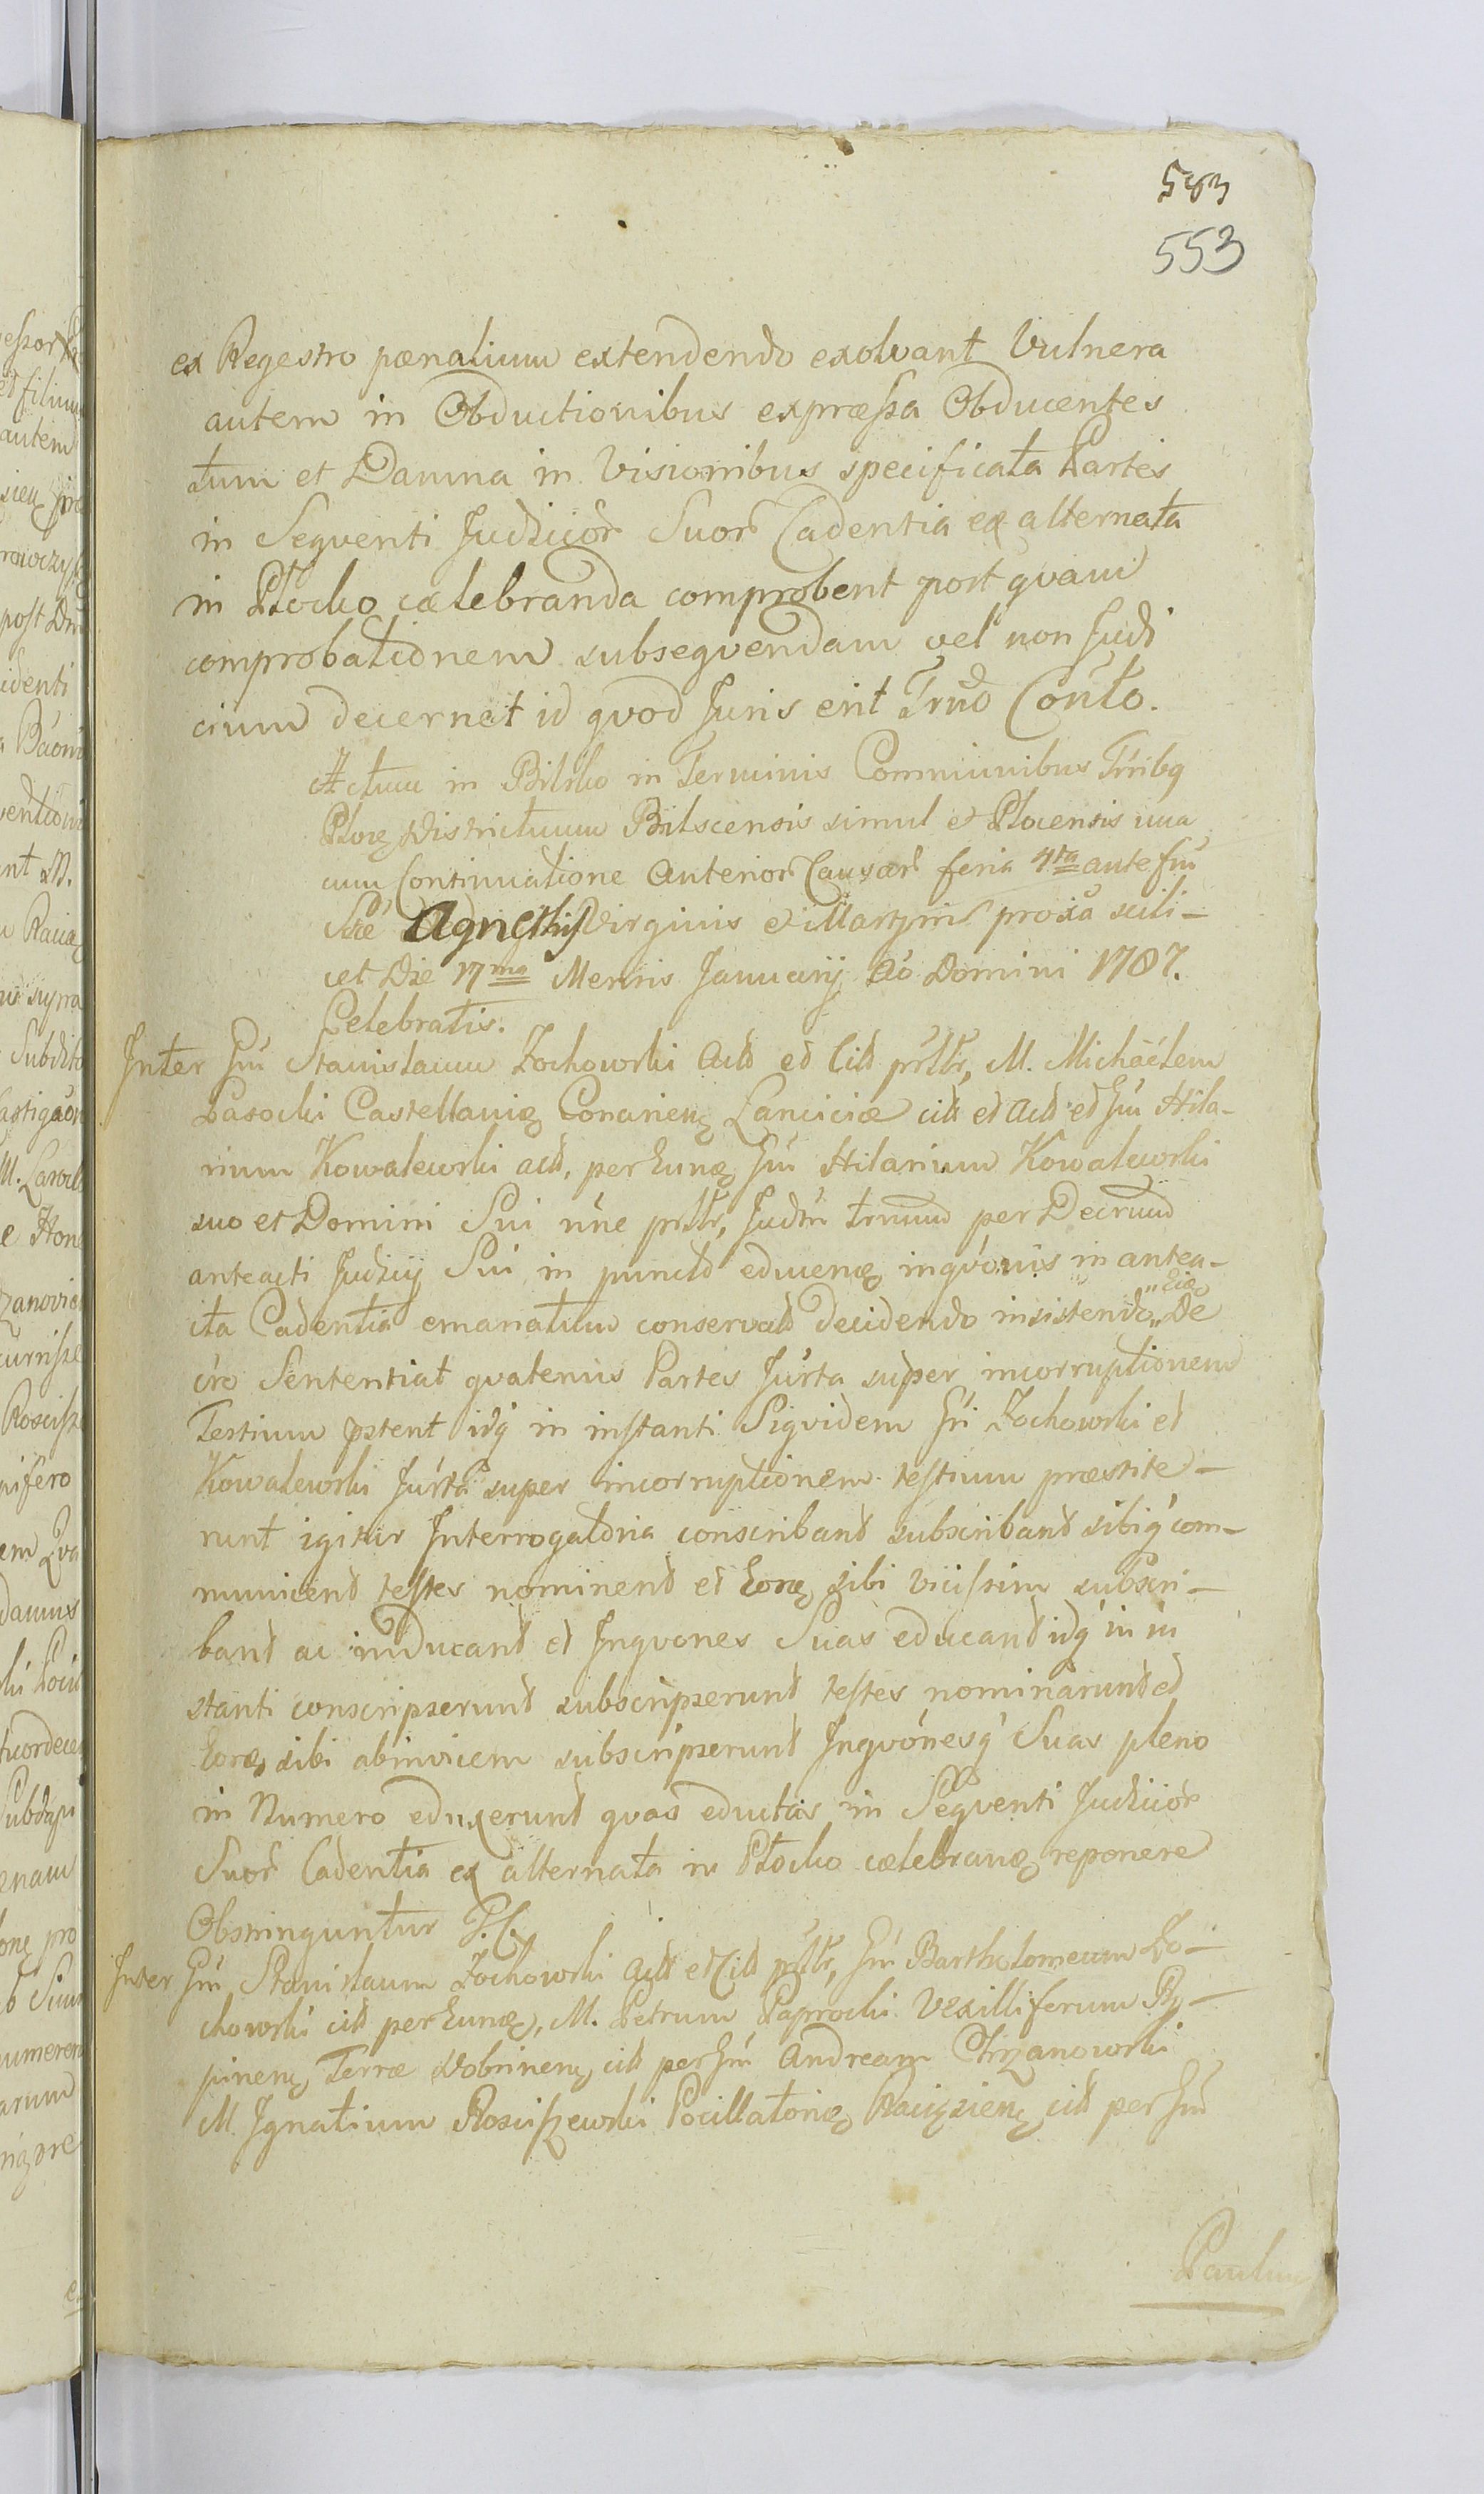 583
553
ex Regestro pœnalium extendendo exolvant Vulnera
autem in Obductionibus expræssa Obducentes
tum et Damna in Visionibus specificata Partes
in Seqventi Judiciор Suor Cadentia ex alternata
in Płocko cælebranda comprobent post qvam
comprobationem subseqvendam vel non Judi
cium decernet id qvod Juris erit Trno Conto.
Actum in Bilsko in Terminis Communibus Trribq
Districtuum Bilscensis simul et Plocensis una
cum Continuatione Anterior Causar feria 4ta ante fm
Stæ Agnethis Virginis et Martyris proxa scili-
cet Die 17ma Mensis Januarij Ao Domini 1787.
Celebratis.
Inter Gm Stanislaum Żochowski Act et Cit M. Michaelem
Lasocki Castellanię Conarien Lanciciæ cit et Act et Gm Hila-
rium Kowalewski act, per Eunę Gm Hilarium Kowalewski
suo et Domini Sui nne Judm trnum per Decrum
anteacti Judicij Sui in puncto educenę inqvonis in antea-
cta Cadentia emanatum conservat decidendo insistendo „Eidę„ De
cro Sententiat qvatenus Partes Jurta super incorruptionem
Testium pstent idq in instanti Siqvidem Gsi Żochowski et
Kowalewski Jurta super incorruptionem testium præstite-
runt igitur Interrogatoria conscribant subscribant sibiq com-
municent testes nominent et Eorę sibi vicissim subscri-
bant ac inducant et Inqvones Suas educant idq in in
stanti conscripserunt subscripserunt testes nominarunt et
Eorę sibi abinvicem subscripserunt Inqvonesq Suas pleno
in Numero eduxerunt qvas eductas in Seqventi Judicior
Suor Cadentia ex alternata in Płocko cælebranę reponere
Obstringuntur T. C.
Inter Gm Stanislaum Żochowski Act et Cit Gm Bartholomeum Żo-
chowski cit per Eunę, M. Petrum Paprocki Vexilliferum Ry-
pinen Terræ Dobrinen cit per Gm Andream Chrzanowski
M. Ignatium Rosciszewski Pocillatorię Raciązien cit per Gm
Paulum